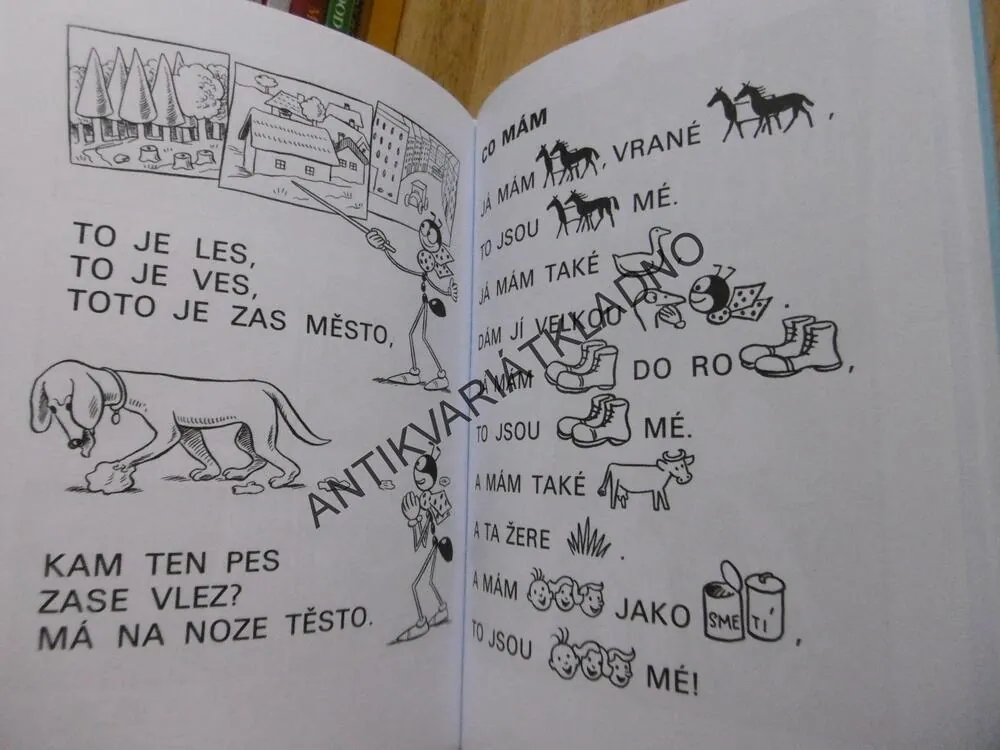 TO JE LES,
TO JE VES,
TOTO JE ZAS MĚSTO,
KAM TEN PES
ZASE VLEZ?
MÁ NA NOZE TĚSTO.
CO MÁM
JÁ MÁM , VRANÉ ,
TO JSOU MÉ.
JÁ MÁM TAKÉ
DÁM JÍ VELKOU .
A MÁM DO RO ,
TO JSOU MÉ.
A MÁM TAKÉ
A TA ŽERE .
A MÁM JAKO SMETÍ ,
TO JSOU MÉ!
ANTIKVARIÁTKLADNO